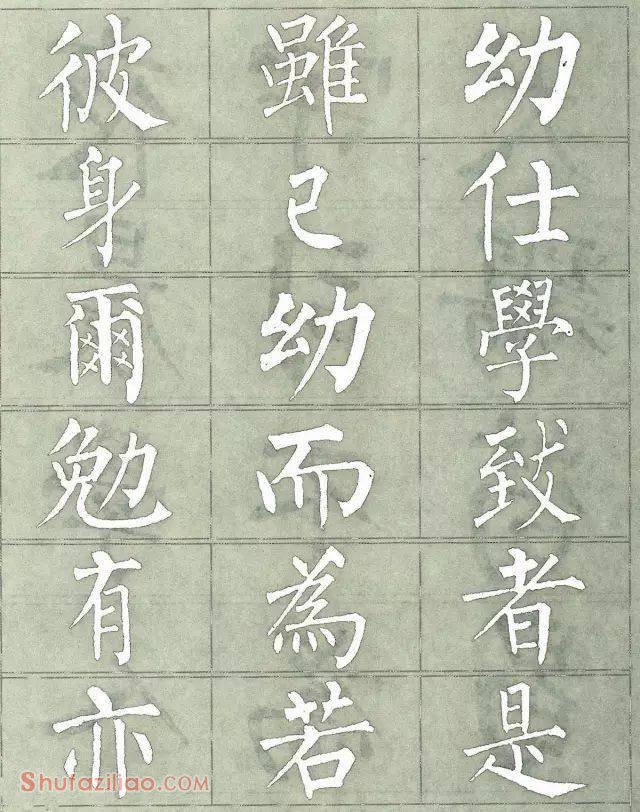 彼雖幼
身已仕
爾幼學
勉而致
有為者
亦若是
Shufaziliao.com